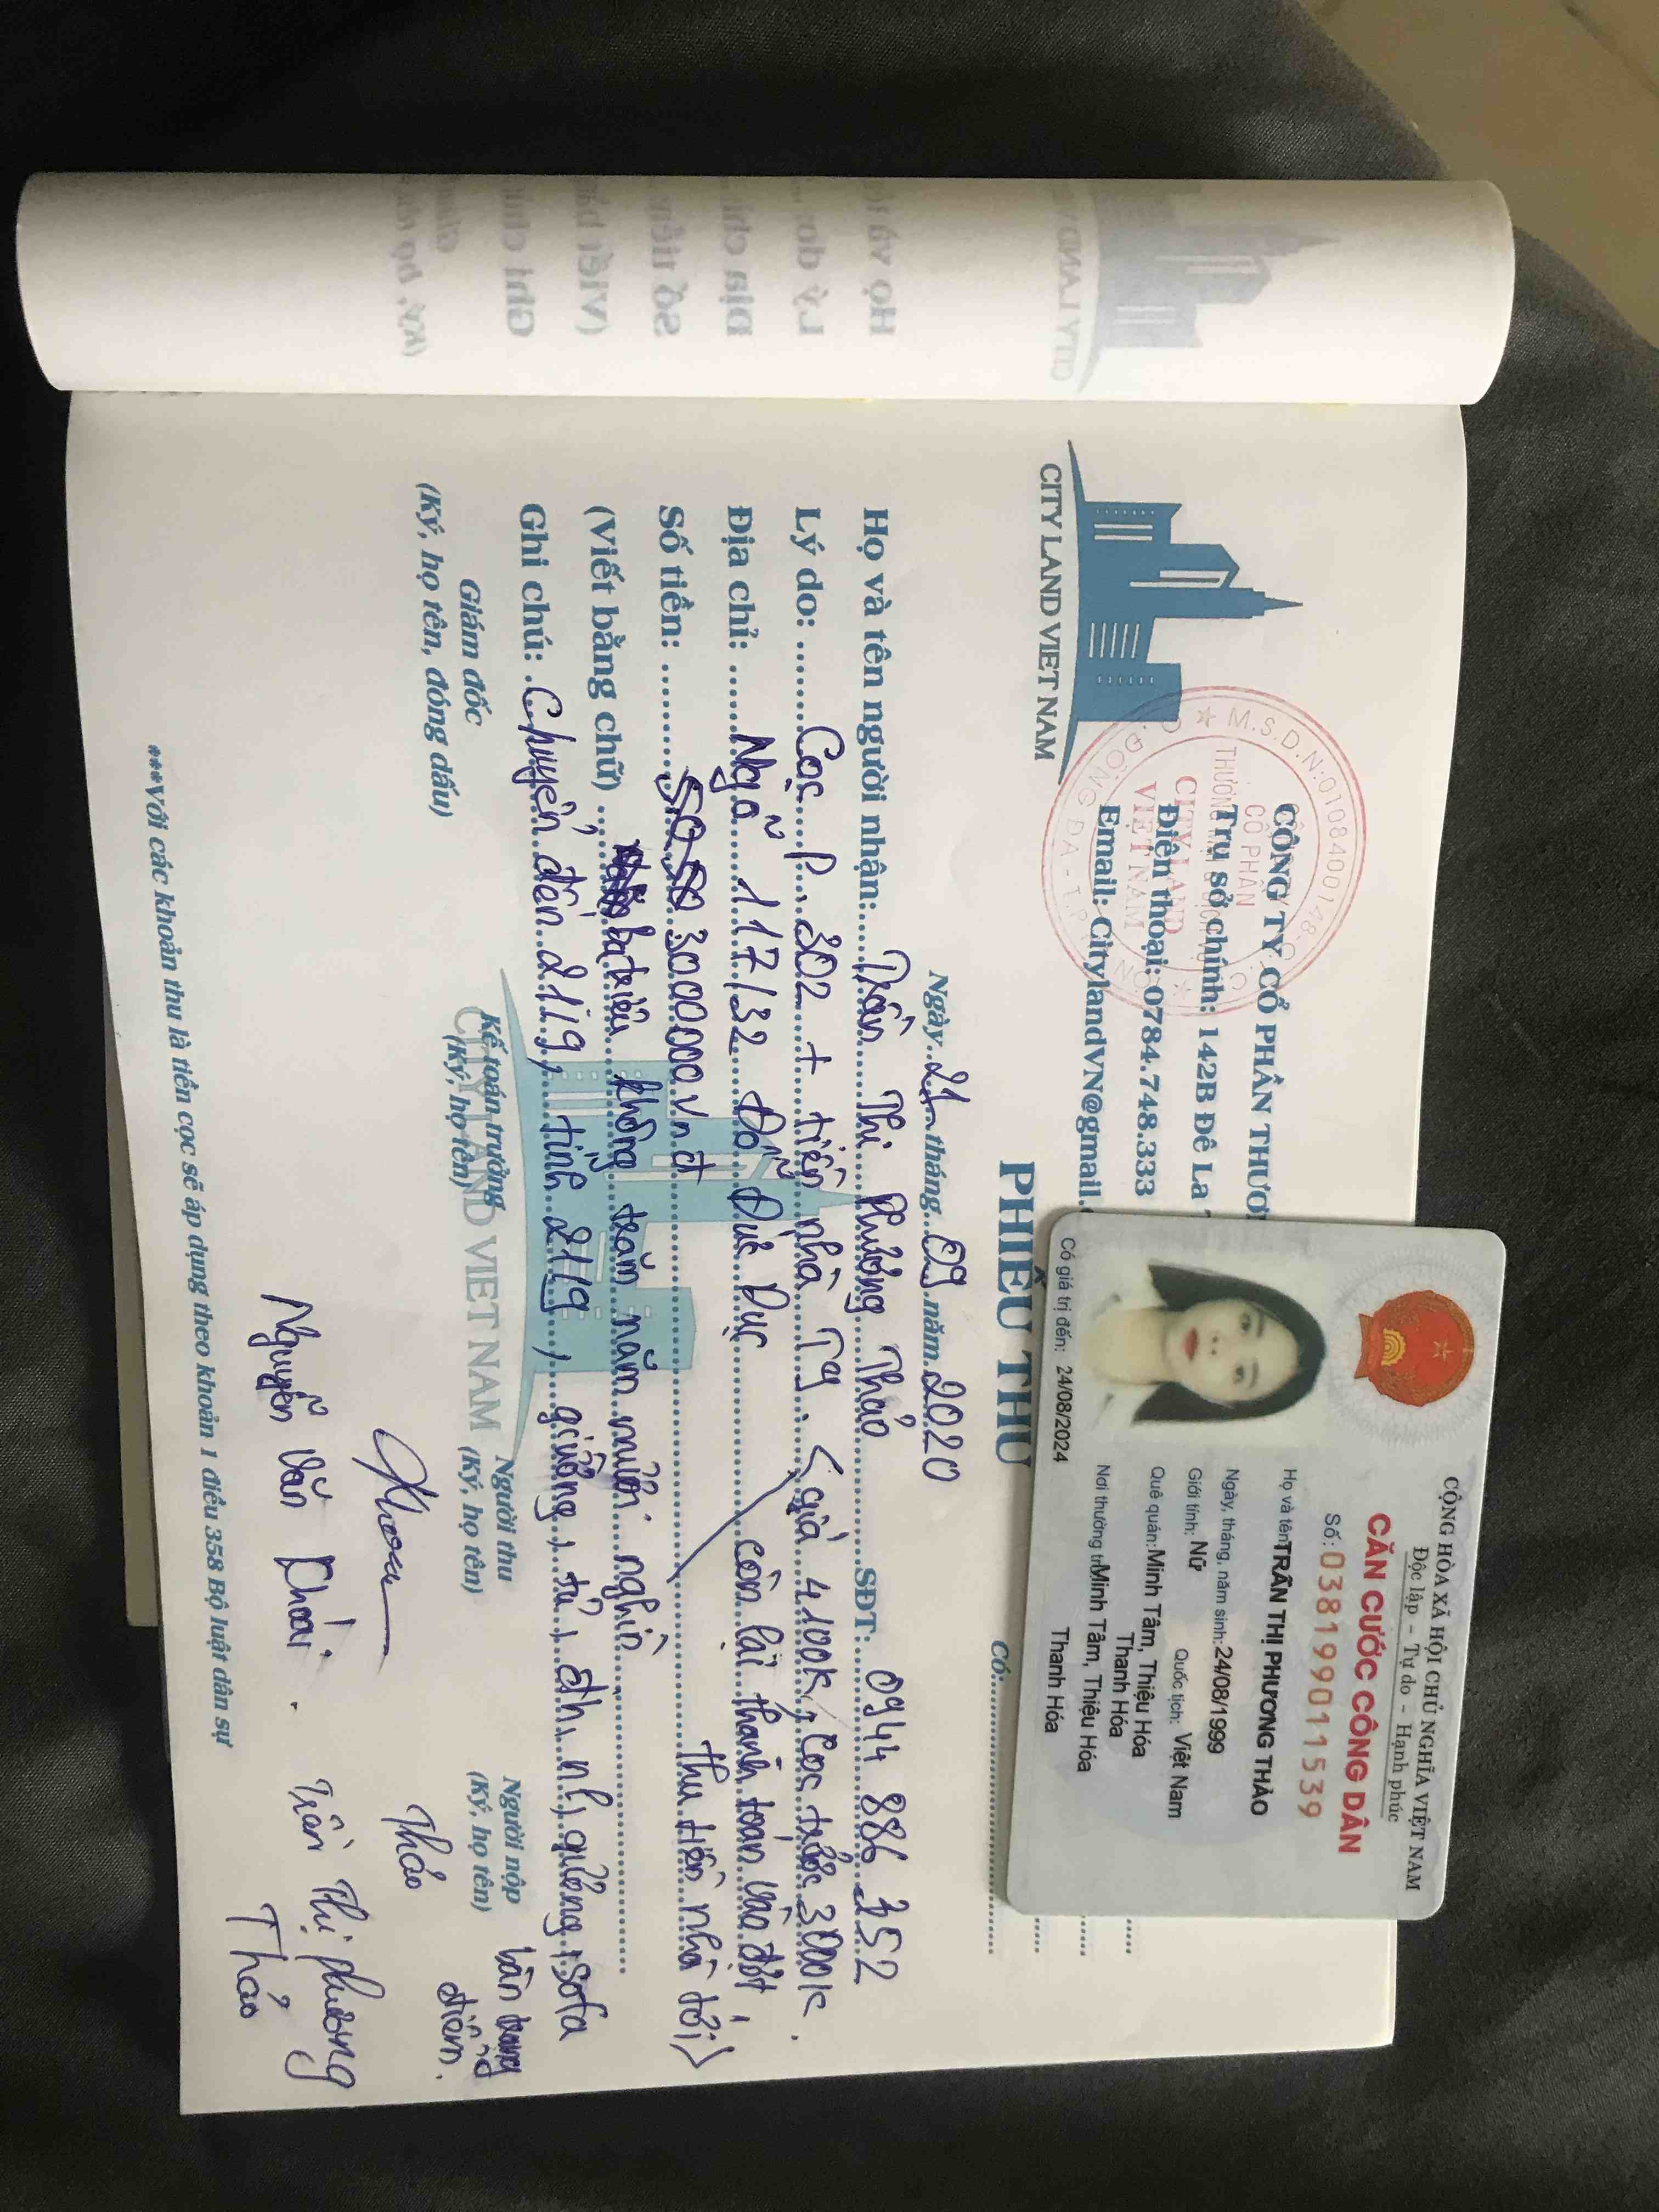 CITY LAND VIET NAM
CÔNG TY CỔ PHẦN THƯƠN
Trụ sở chính: 142B Đê La
Điện thoại: 0784.748.333
Email: CitylandVN@gmail.
M.S.D.N:0108400148
CỔ PHẦN
CITY LAND
VIỆT NAM
ĐỐNG ĐA - T.P
CỘNG HÒA XÃ HỘI CHỦ NGHĨA VIỆT NAM
Độc lập - Tự do - Hạnh phúc
CĂN CƯỚC CÔNG DÂN
Số: 038199011539
Họ và tên: TRẦN THỊ PHƯƠNG THẢO
Ngày, tháng, năm sinh: 24/08/1999
Giới tính: Nữ Quốc tịch: Việt Nam
Quê quán: Minh Tâm, Thiệu Hóa
Thanh Hóa
Nơi thường trú: Minh Tâm, Thiệu Hóa
Thanh Hóa
Có giá trị đến: 24/08/2024
PHIẾU THU
Có:
Ngày 21 tháng 09 năm 2020
Họ và tên người nhận: Trần Thị Phương Thảo SĐT: 0944 886 352
Lý do: Cọc P. 302 + tiền nhà T9. < giá 4100K, Cọc trước 3000K.
Địa chỉ: Ngõ 117/32 Đỗ Đức Dục còn lại thanh toán vào đợt
Số tiền: 3.000.000 vnđ thu tiền nhà tới >
(Viết bằng chữ) ba triệu không trăm năm mươi nghìn
Ghi chú: Chuyển đến 21/9, tính 21/9, giường, tủ, đh, nl, sofa
bàn trang điểm.
Giám đốc
(Ký, họ tên, đóng dấu)
Kế toán trưởng
(Ký, họ tên)
Người thu
(Ký, họ tên)
Người nộp
(Ký, họ tên)
CITY LAND VIET NAM
Thảo
Nguyễn Văn Khoái.
Trần Thị Phương Thảo
***Với các khoản thu là tiền cọc sẽ áp dụng theo khoản 1 điều 358 Bộ luật dân sự